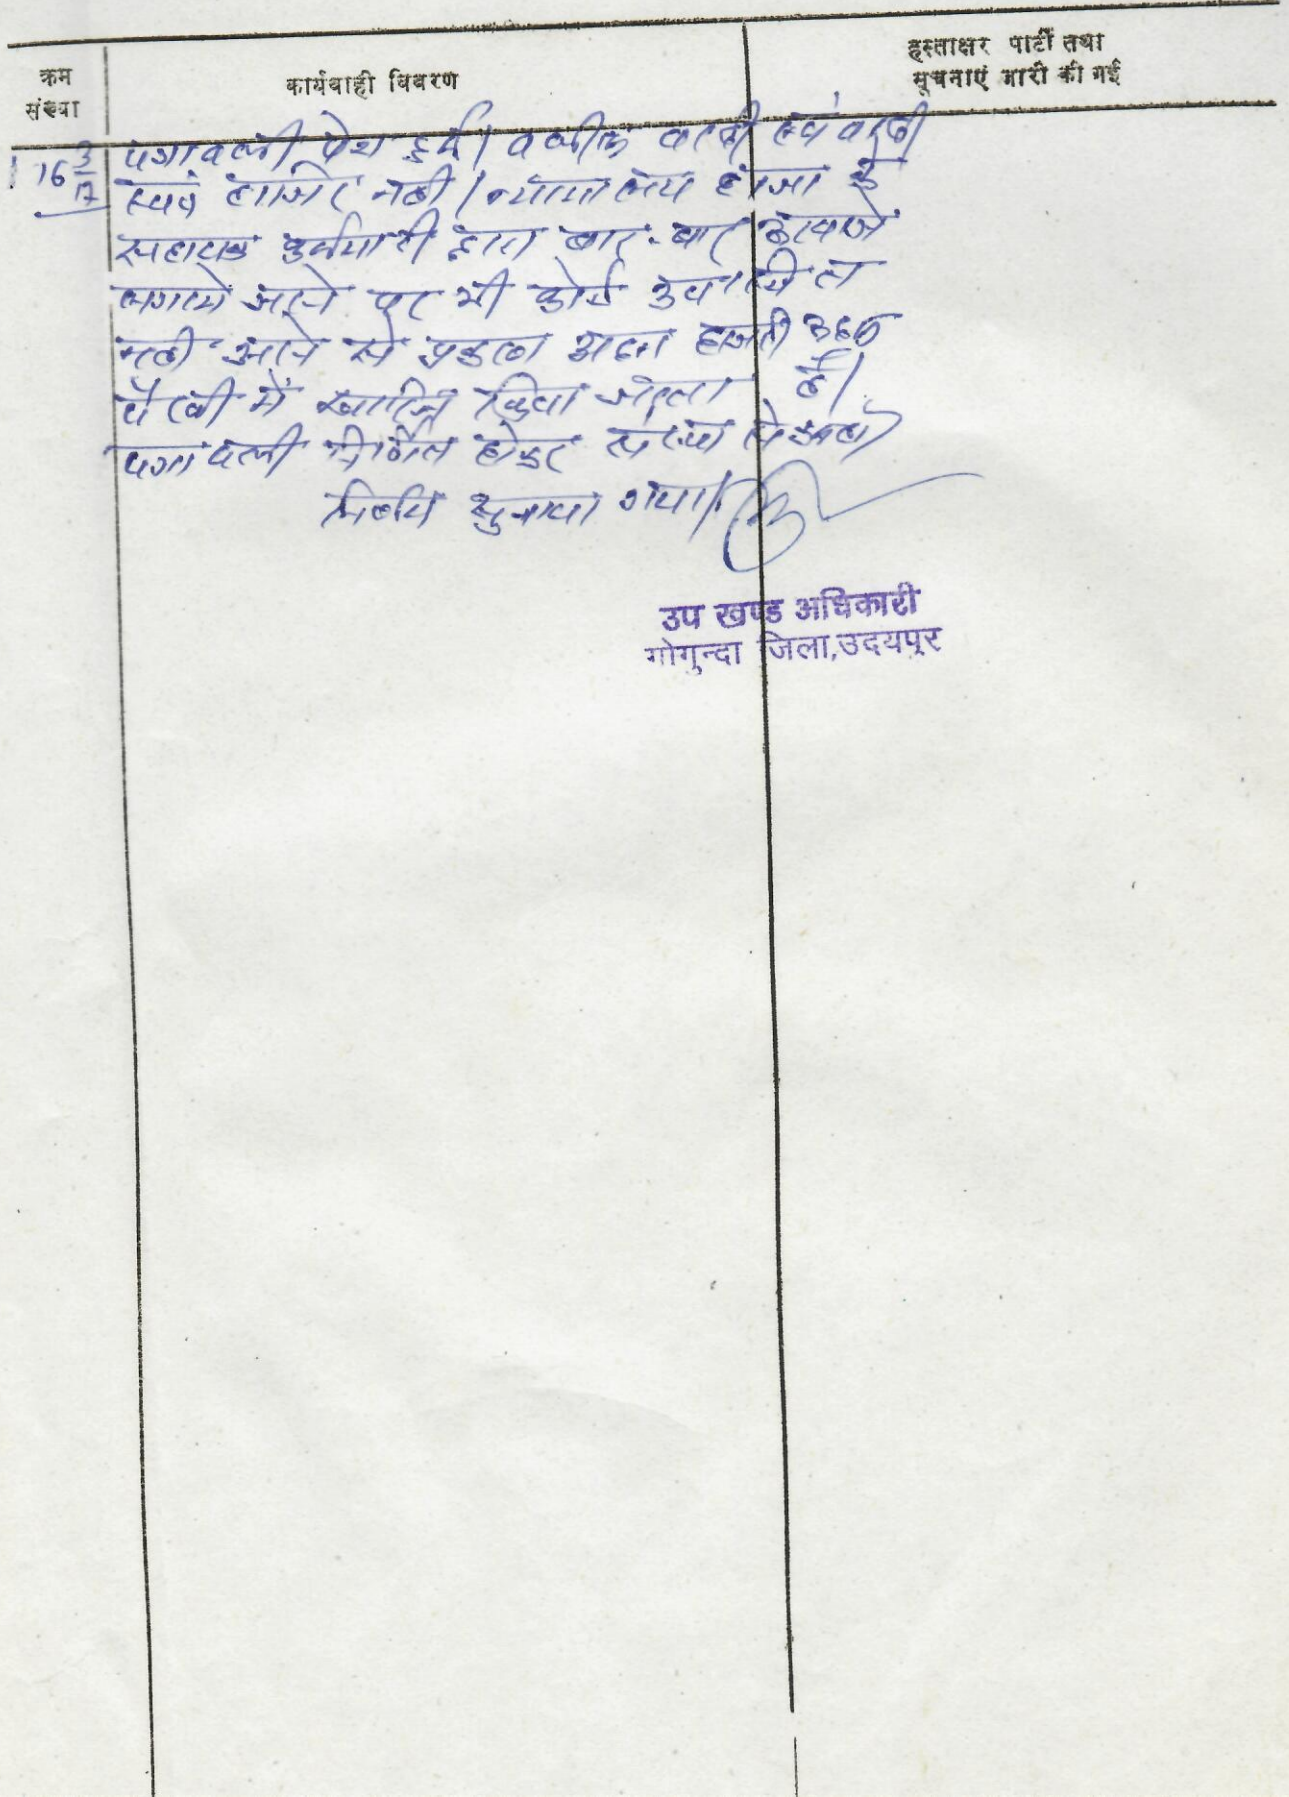 क्रम
संख्या
कार्यवाही विवरण
हस्ताक्षर पार्टी तथा
सूचनाएं जारी की गई
16 3/17
पत्रावली पेश हुई। वकील वादी एवं वादी
स्वयं हाजिर नही। न्यायालय हाजा के
सहायक कर्मचारी द्वारा बार-बार आवाजे
लगाये जाने पर भी कोई उपस्थित
नही आने से प्रकरण अदम हाजरी अदम
पैरवी में खारिज किया जाता है।
पत्रावली निर्णित होकर संख्या से कम हो
निर्णय सुनाया गया।
उप खण्ड अधिकारी
गोगुन्दा जिला,उदयपुर